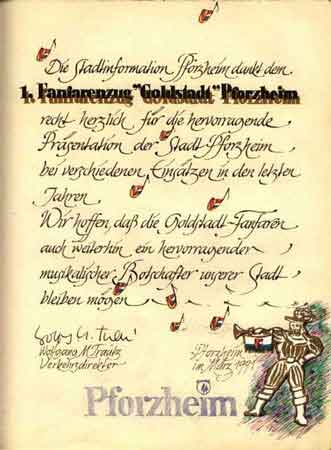 Die Stadtinformation Pforzheim dankt dem
1. Fanfarenzug "Goldstadt" Pforzheim
recht herzlich für die hervorragende
Präsentation der Stadt Pforzheim
bei verschiedenen Einsätzen in den letzten
Jahren
Wir hoffen, daß die Goldstadt-Fanfaren
auch weiterhin ein hervorragender
musikalischer Botschafter unserer Stadt
bleiben mögen
Wolfgang M. Trautz
Verkehrsdirektor
Pforzheim
im März 1991
Pforzheim